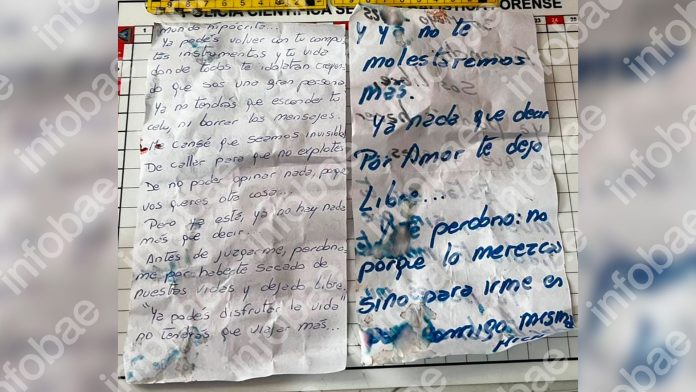 POLICIA CIENTIFICA SE
ORENSE
mundo hipócrita...
Ya podés volver con tu compu
tus instrumentos y tu vida
donde todos te idolatran creyen
do que sos una gran persona
Ya no tendrás que esconder tu
celu, ni borrar los mensajes.
Me cansé que seamos invisibles
De callar para que no explotes
De no poder opinar nada, porque
vos queres otra cosa...
Pero ya está, ya no hay nada
más que decir...
Antes de juzgarme, perdona
me por haberte sacado de
nuestras vidas y dejado libre.
"Ya podés disfrutar la vida"
no tenerás que viajar más...
y ya no te
molestaremos
más.
Ya nada que decir
Por Amor te dejo
Libre...
te perdono: no
porque lo merezcas
sino para irme en
conmigo misma
infobae
infobae
infobae
infobae
infobae
infobae